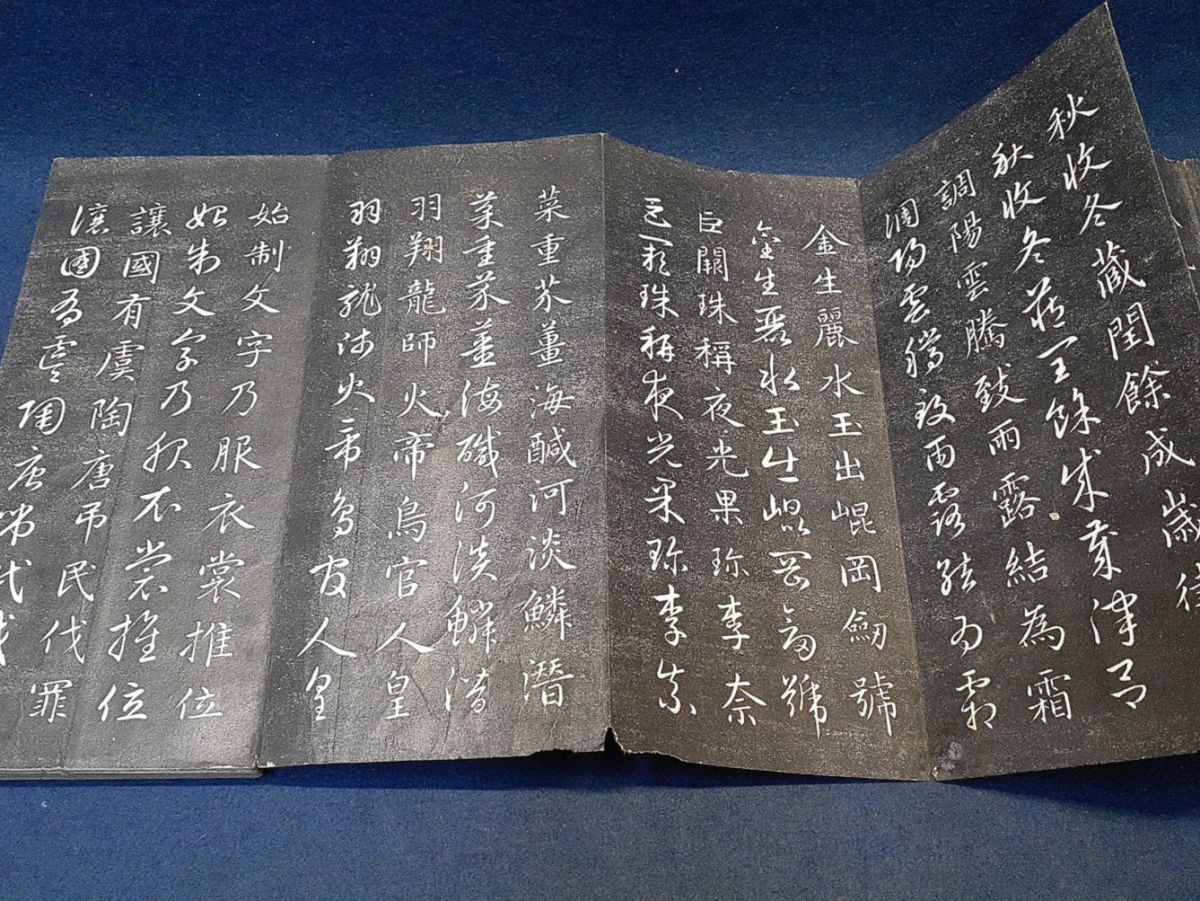 秋收冬藏閏餘成歲律
秋收冬藏閏餘成歲律呂
調陽雲騰致雨露結為霜
調陽雲騰致雨露結為霜
金生麗水玉出崐岡劒號
金生麗水玉出崐岡劒號
巨闕珠稱夜光果珍李奈
巨闕珠稱夜光果珍李奈
菜重芥薑海醎河淡鱗潛
菜重芥薑海醎河淡鱗潛
羽翔龍師火帝鳥官人皇
羽翔龍師火帝鳥官人皇
始制文字乃服衣裳推位
始制文字乃服衣裳推位
讓國有虞陶唐吊民伐罪
讓國有虞陶唐吊民伐